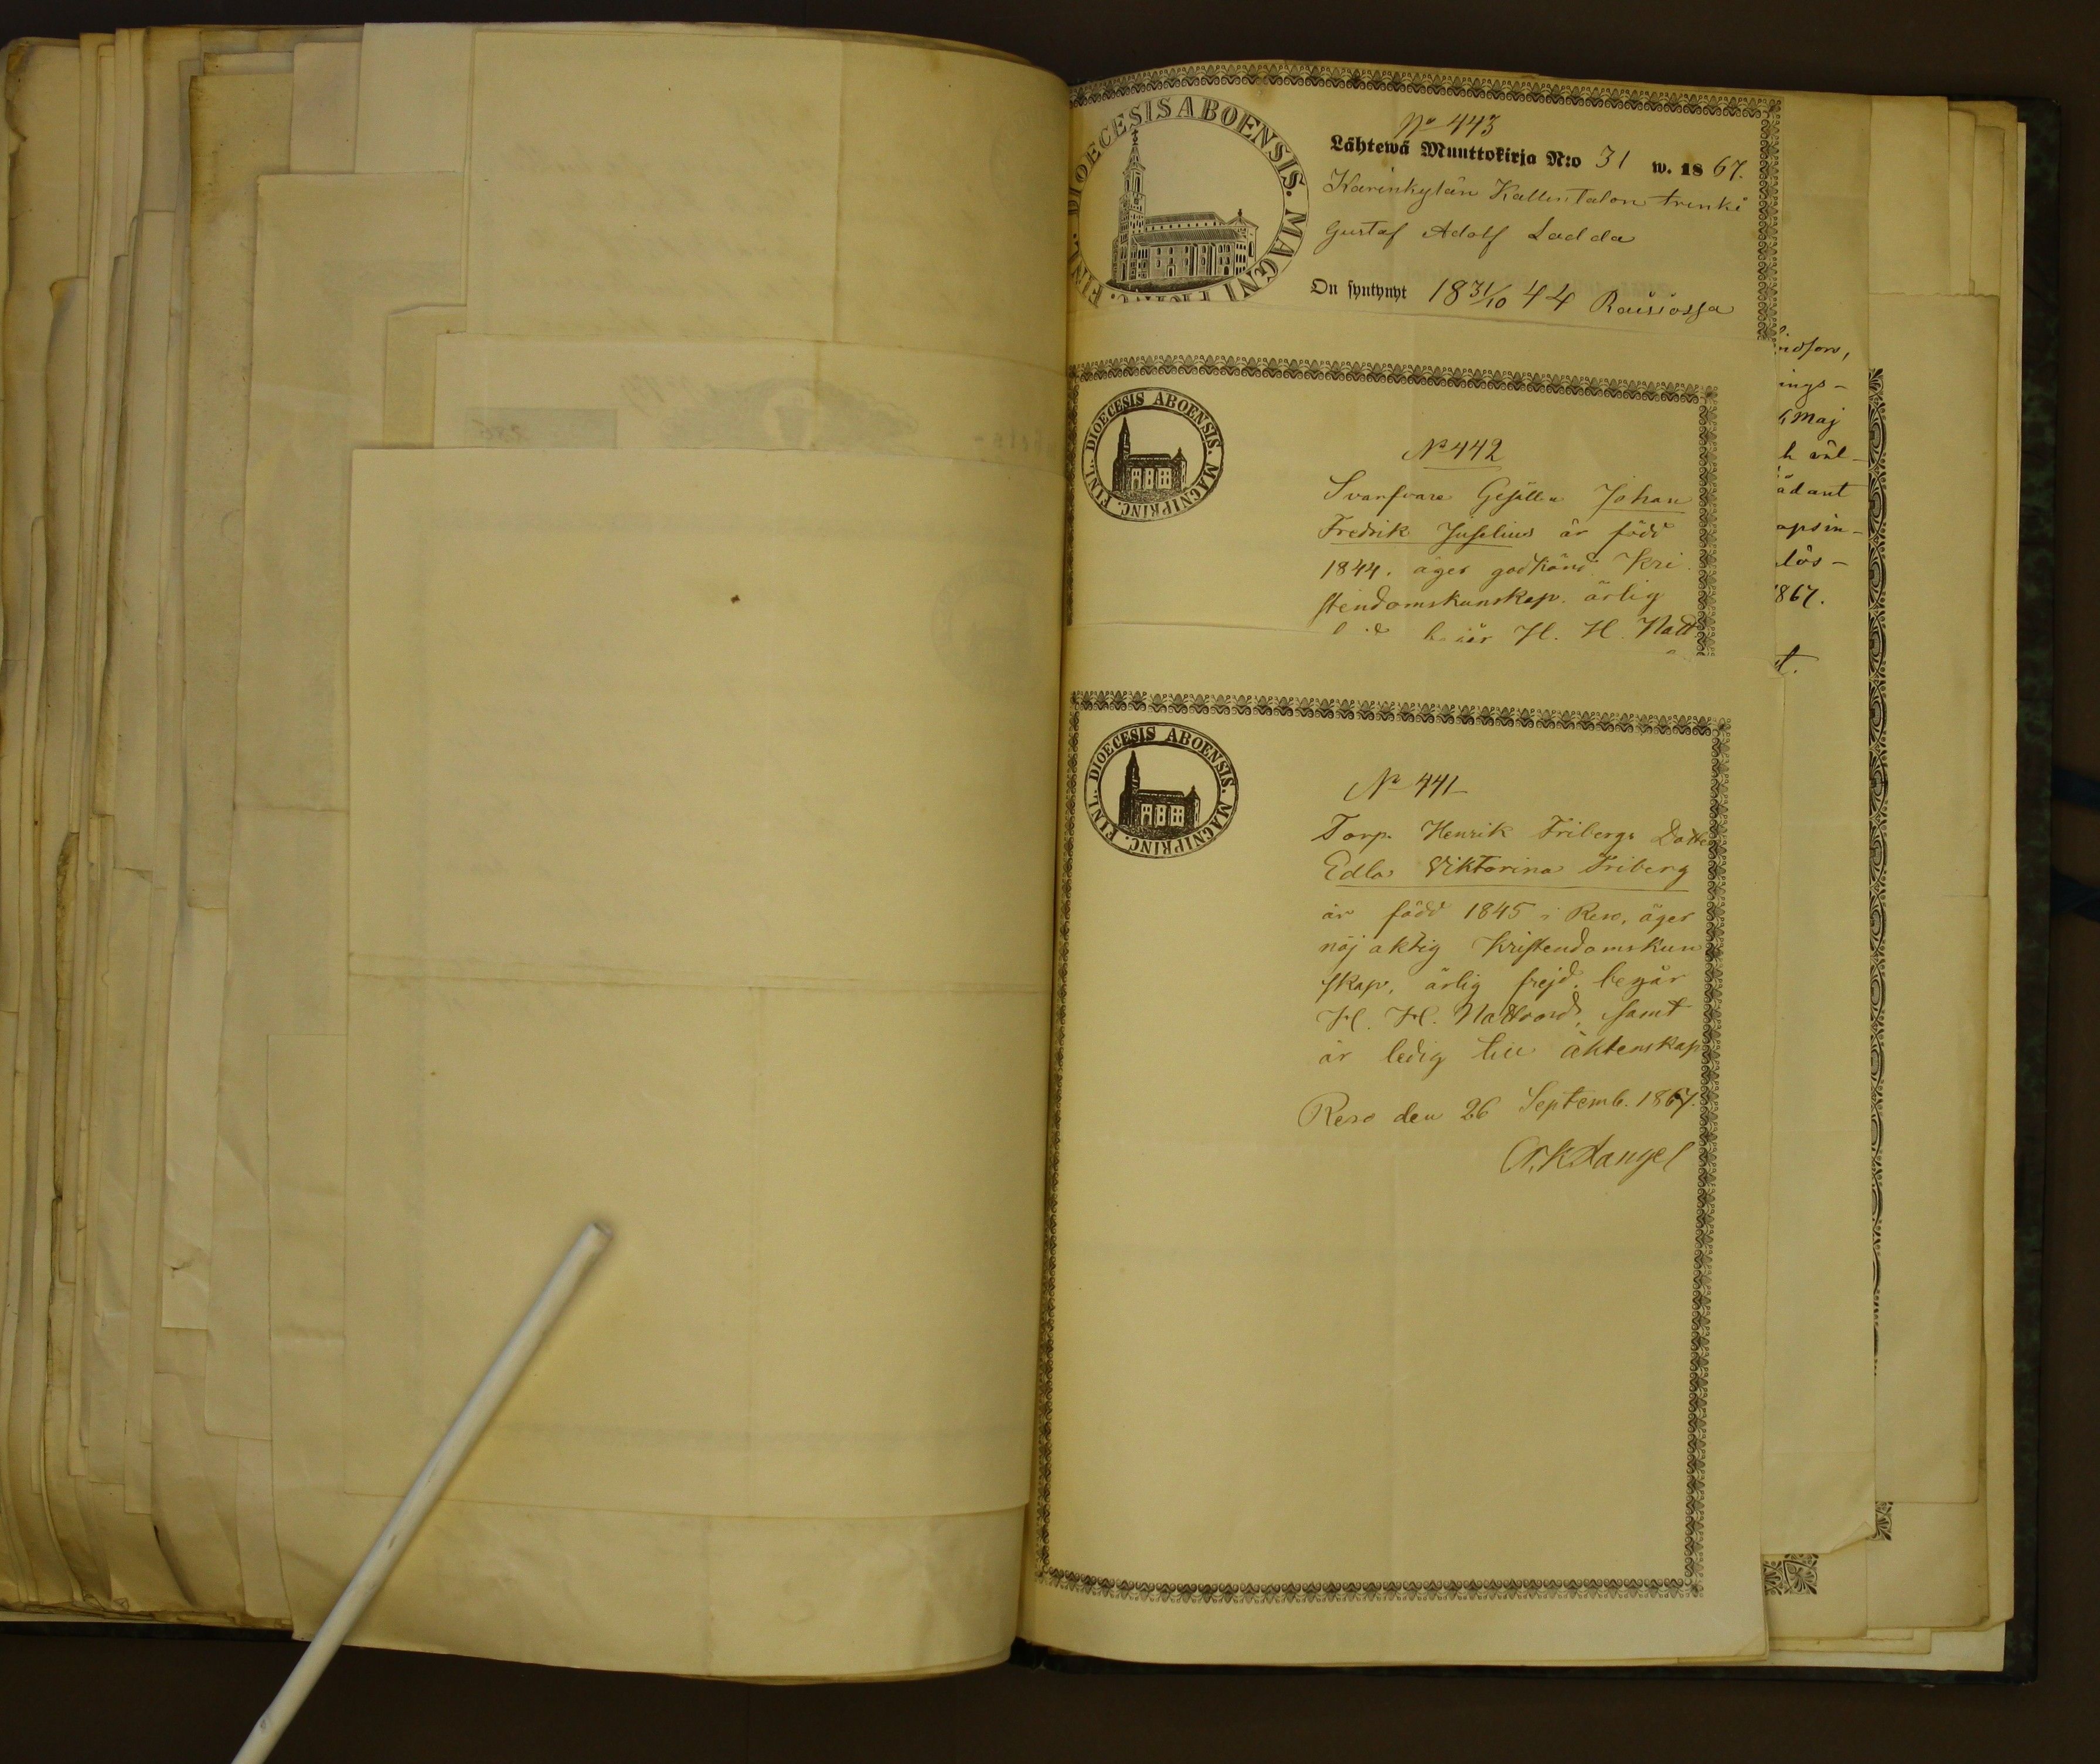 DIOECESIS ABOENSIS. MAGNI PRINC. FINL.
No 443
Lähtewä Muuttokirja N:o 31 w. 1867.
Karinkylän Kallintalon trenki
Gustaf Adolf Ladda
On syntynyt 18 31/10 44 Raisiossa
DIOECESIS ABOENSIS. MAGNIPRINC. FINL.
No 442
Svarfvare Gesällen Johan
Fredrik Juselius är född
1844. äger godkänd Kri
stendomskunskap. ärlig
H. H. Natt
DIOECESIS ABOENSIS. MAGNIPRINC. FINL.
No 441
Torp. Henrik Fribergs Dotte
Edla Viktorina Friberg
är född 1845 i Reso, äger
nöjaktig Kristendomskun
skap, ärlig frejd. begår
H. H. Nattvard, samt
är ledig till äktenskap
Reso den 26 Septemb. 1867.
Langel
ings-
Maj
apsin-
lös-
1867.